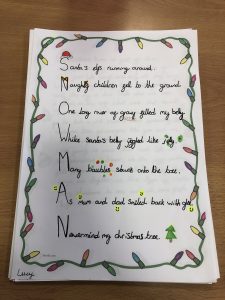 Santa's elfs running around.
Naughty children fell to the ground.
One big river of gravy filled my belly
While santa's belly jiggled like jelly.
Many baubles shown onto the tree.
As mum and dad smiled back with glee
Nevermind my christmas tree.
Lucy